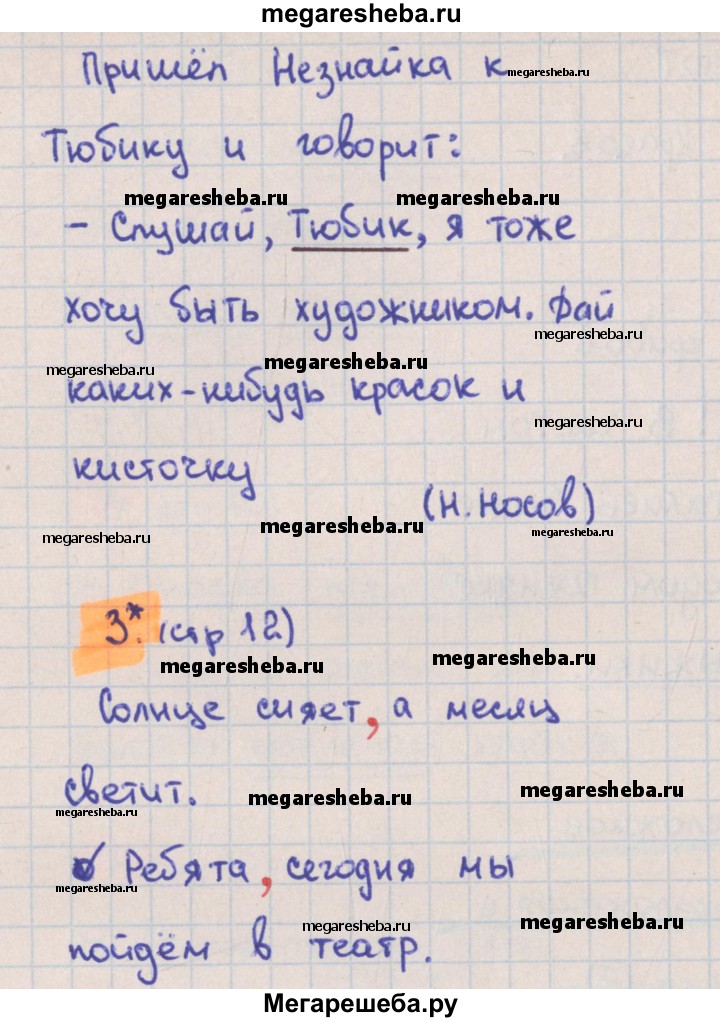 megaresheba.ru
Пришёл Незнайка к
megaresheba.ru
Тюбику и говорит:
megaresheba.ru megaresheba.ru
- Слушай, Тюбик, я тоже
хочу быть художником. Дай
megaresheba.ru
megaresheba.ru megaresheba.ru
каких-нибудь красок и
megaresheba.ru
кисточку
(Н. Носов)
megaresheba.ru megaresheba.ru megaresheba.ru
3*. (стр 12)
megaresheba.ru megaresheba.ru
Солнце сияет, а месяц
светит.
megaresheba.ru megaresheba.ru megaresheba.ru
Ребята, сегодня мы
megaresheba.ru
megaresheba.ru megaresheba.ru
пойдём в театр.
Мегарешеба.ру